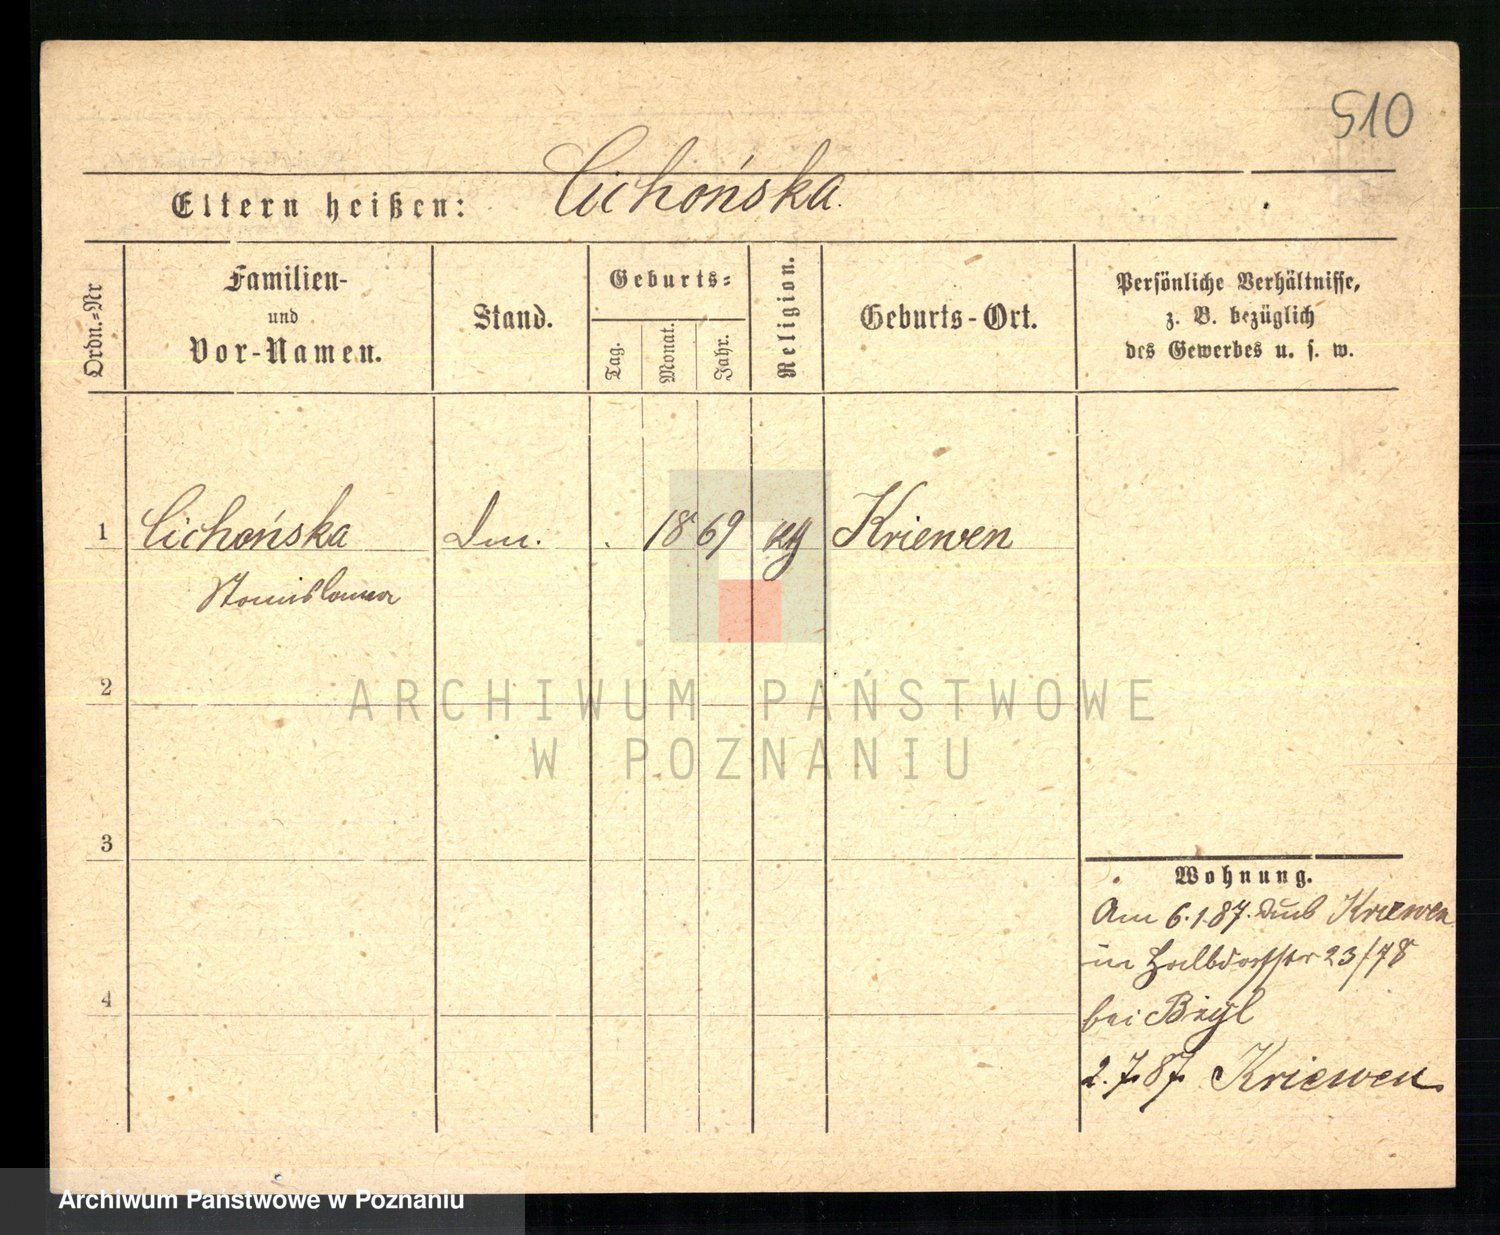 510
Eltern heißen: Cichońska.
Ordn.-Nr
Familien-
und
Vor-Namen.
Stand.
Geburts-
Tag.
Monat.
Jahr.
Religion.
Geburts-Ort.
Persönliche Verhältnisse,
z. B. bezüglich
des Gewerbes u. s. w.
1 Cichońska 1869 Kriewen
Stanislawa
2
3
4
Wohnung.
Am 6.1.87. Kriewen
in Halbdorfstr 23/78
bei
2.7.87. Kriewen.
ARCHIWUM PAŃSTWOWE
W POZNANIU
Archiwum Państwowe w Poznaniu